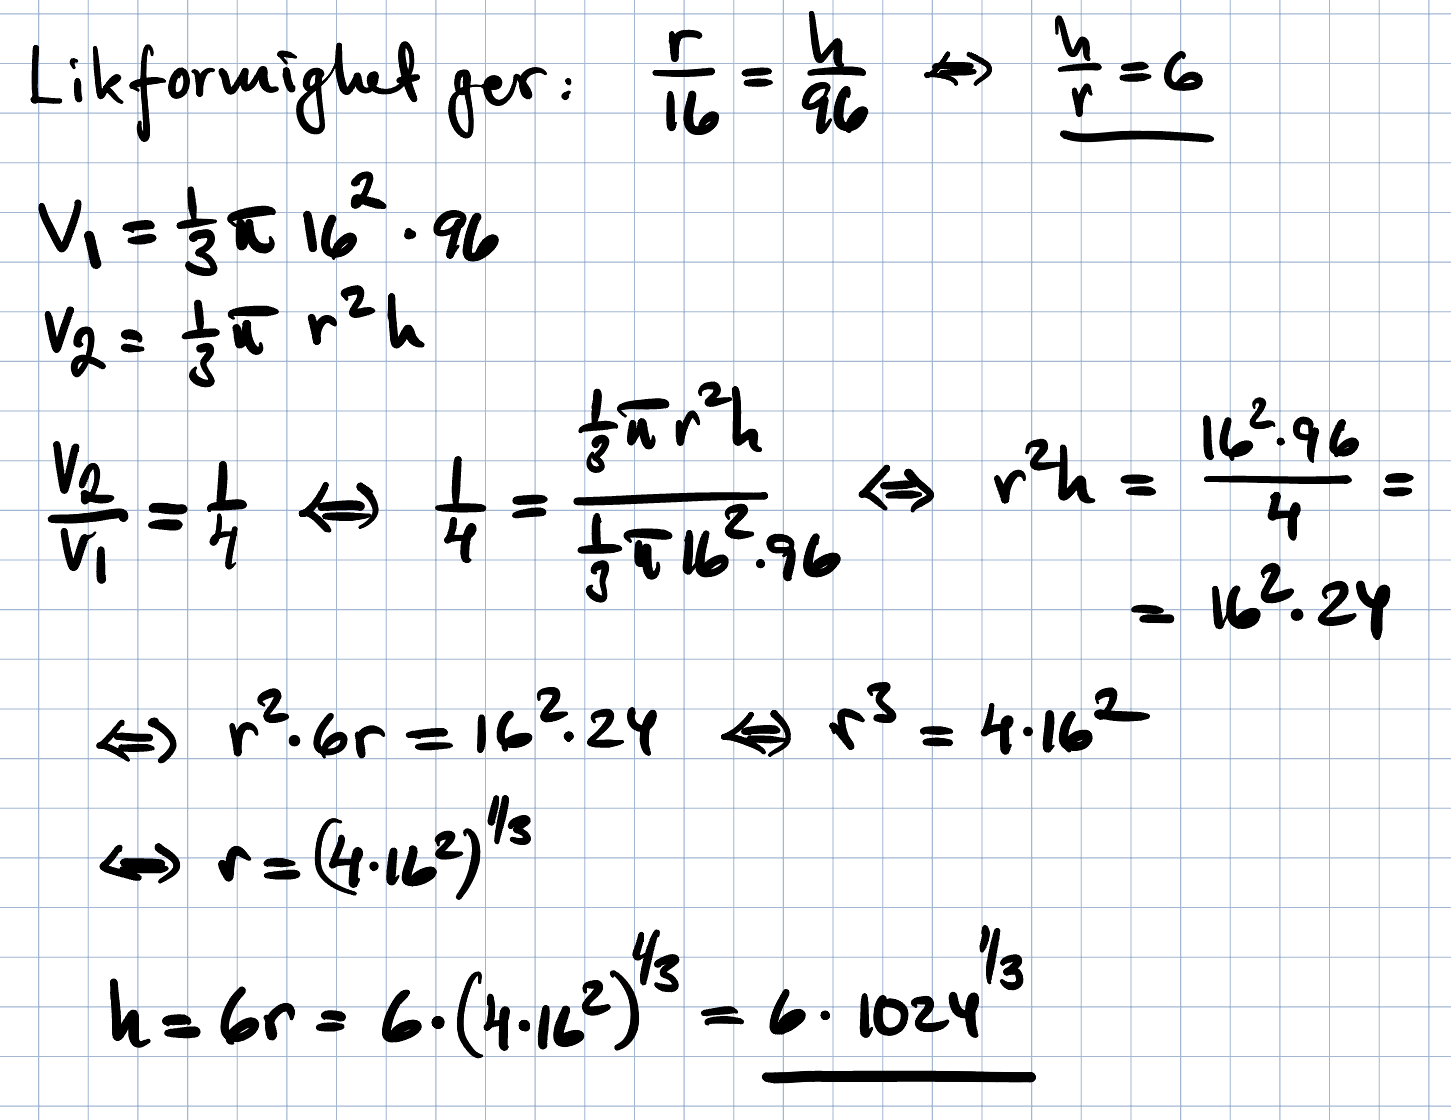 Likformighet ger: r/16 = h/96 ⟺ h/r = 6
V₁ = 1/3 π 16² · 96
V₂ = 1/3 π r²h
V₂/V₁ = 1/4 ⟺ 1/4 = (1/3 π r²h)/(1/3 π 16² · 96) ⟺ r²h = (16² · 96)/4 =
= 16² · 24
⟺ r² · 6r = 16² · 24 ⟺ r³ = 4 · 16²
⟺ r = (4 · 16²)^(1/3)
h = 6r = 6 · (4 · 16²)^(1/3) = 6 · 1024^(1/3)